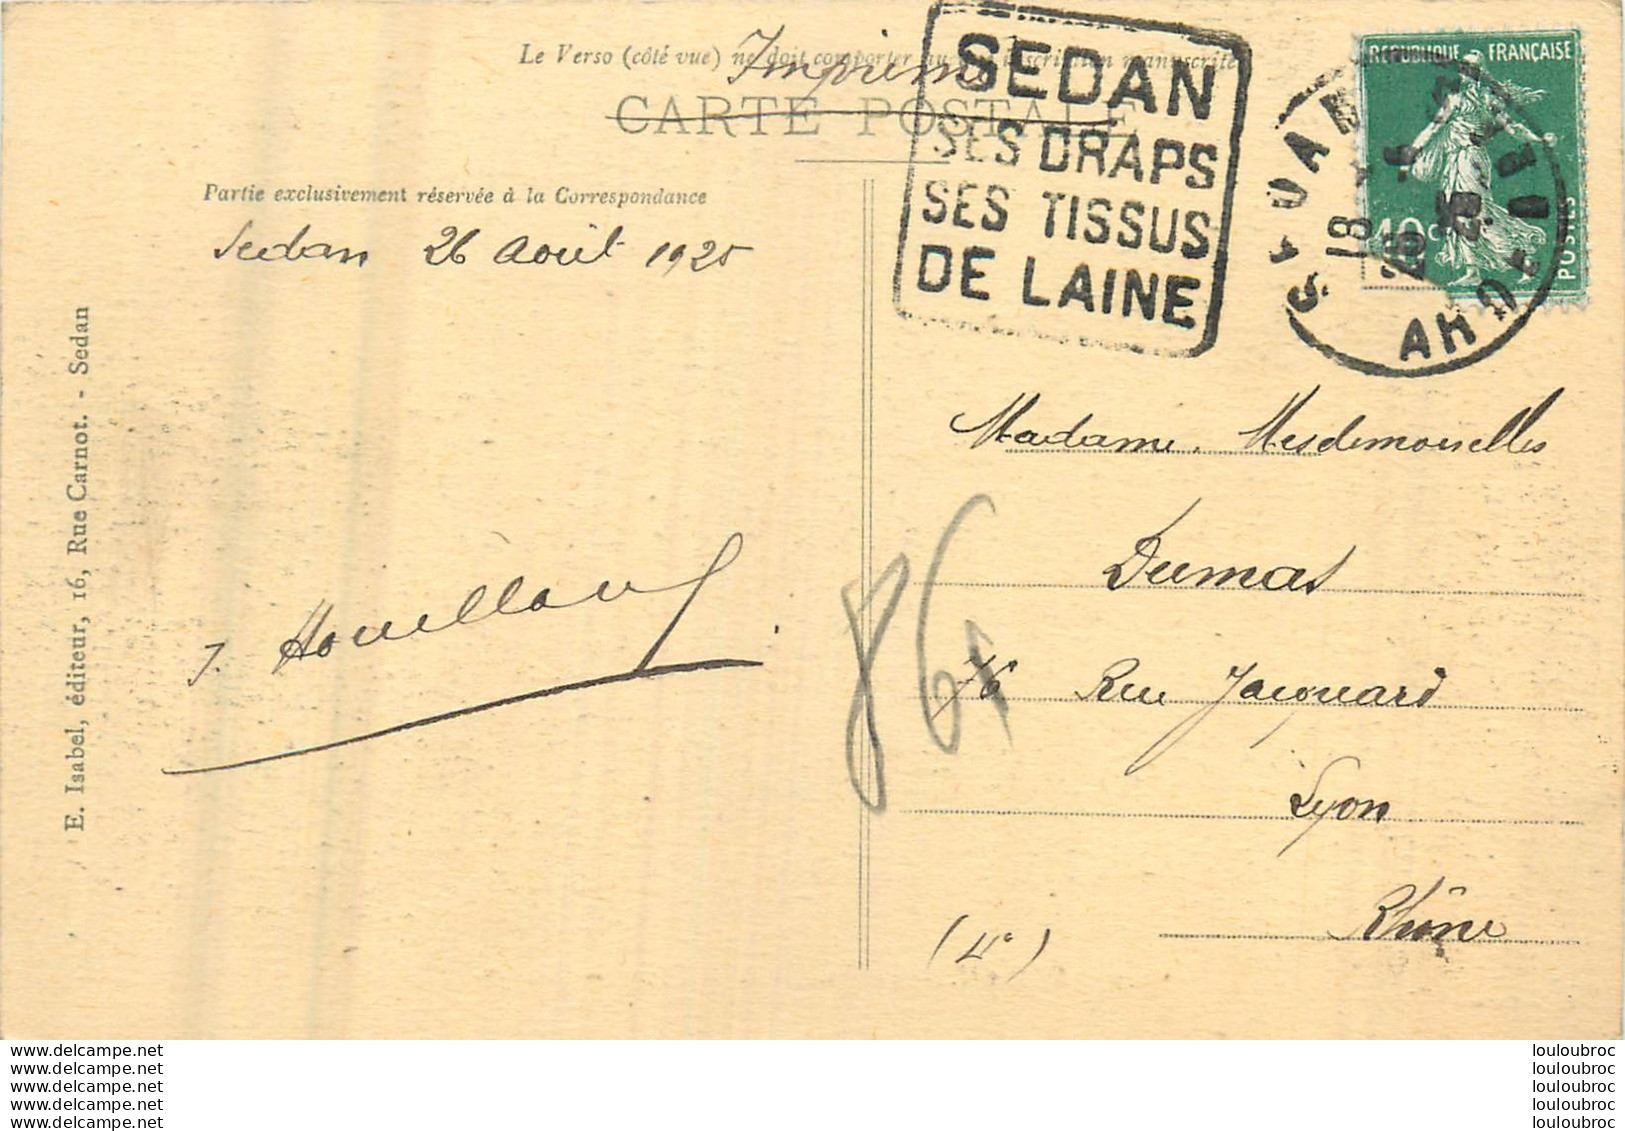 Le Verso (côté vue) ne doit comporter
Imprimé
CARTE POSTALE
SEDAN
SES DRAPS
SES TISSUS
DE LAINE
REPUBLIQUE FRANÇAISE
10c
POSTES
18
26
25
Partie exclusivement réservée à la Correspondance
Sedan 26 Août 1925
Madame, Mesdemoiselles
Dumas
76 Rue Jacquard
Lyon
Rhône
86
E. Isabel, éditeur, 16, Rue Carnot. - Sedan
www.delcampe.net
www.delcampe.net
www.delcampe.net
www.delcampe.net
www.delcampe.net
louloubroc
louloubroc
louloubroc
louloubroc
louloubroc